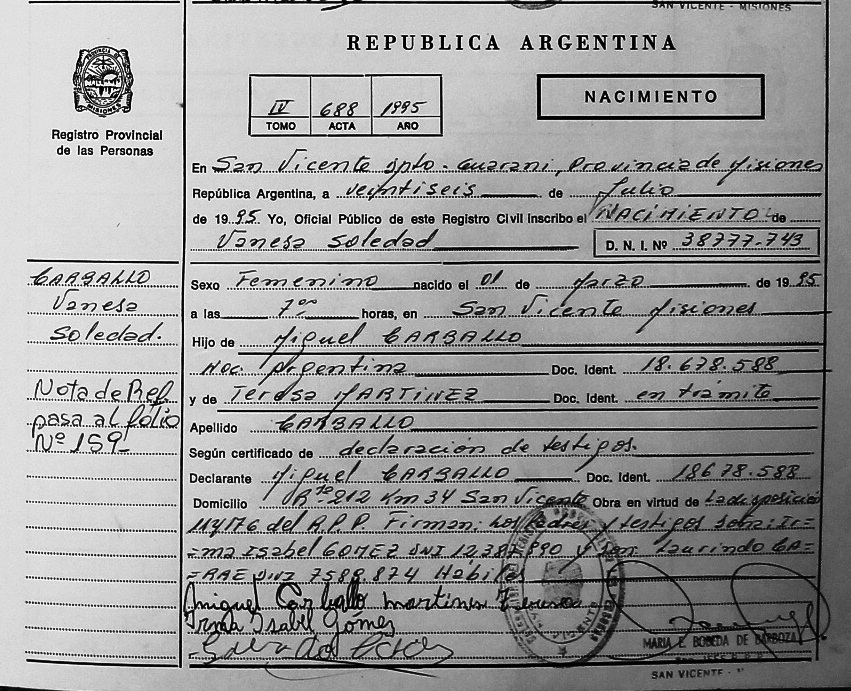 SAN VICENTE - MISIONES
REPUBLICA ARGENTINA
PROVINCIA DE MISIONES
Registro Provincial
de las Personas
IV 688 1995
TOMO ACTA AÑO
NACIMIENTO
En San Vicente Dpto. Guarani, Provincia de Misiones
República Argentina, a veyntiseis de Julio
de 1995 Yo, Oficial Público de este Registro Civil inscribo el NACIMIENTO de
Vanesa Soledad D. N. I. Nº 38777.743
CARBALLO
Vanesa
Soledad.
Nota de Ref.
pasa al folio
Nº 159-
Sexo Femenino nacido el 01 de Marzo de 1995
a las 7:00 horas, en San Vicente Misiones
Hijo de Miguel CARBALLO
Nac. Argentina Doc. Ident. 18.678.588
y de Teresa MARTINEZ Doc. Ident. en trámite
Apellido CARBALLO
Según certificado de declaración de testigos.
Declarante Miguel CARBALLO Doc. Ident. 18678.588
Domicilio Rta 212 Km 34 San Vicente Obra en virtud de La disposición
114/76 del R.P.P. Firman: Los Padres y testigos
Isabel GOMEZ DNI y Laurindo CA=
=RAE DNI 7589.874 Hábiles
Miguel Carballo Martinez Teresa
Irma Isabel Gómez
MARIA E. BOBEDA DE BARBOZA
SAN VICENTE -